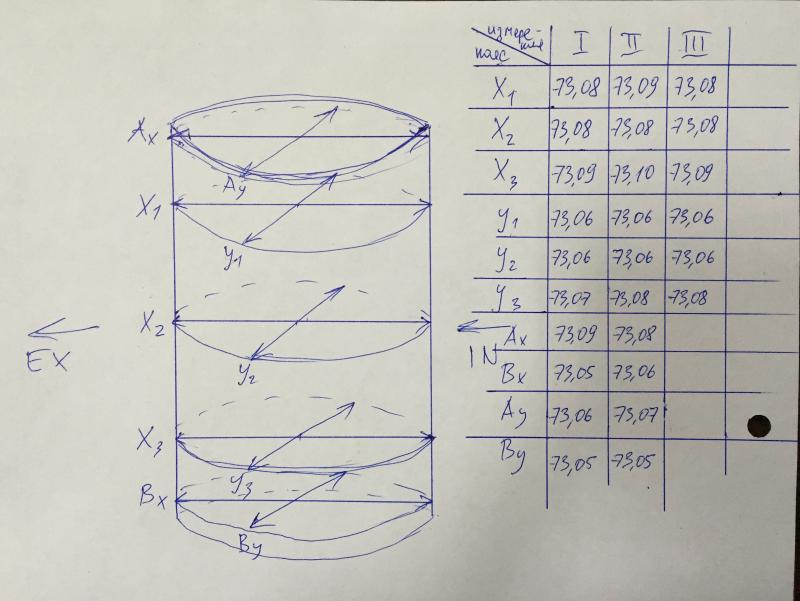 Ax
Ay
X1
y1
EX
X2
y2
IN
X3
y3
Bx
By
измерение I II III
пояс
X1 73,08 73,09 73,08
X2 73,08 73,08 73,08
X3 73,09 73,10 73,09
y1 73,06 73,06 73,06
y2 73,06 73,06 73,06
y3 73,07 73,08 73,08
Ax 73,09 73,08
Bx 73,05 73,06
Ay 73,06 73,07
By 73,05 73,05